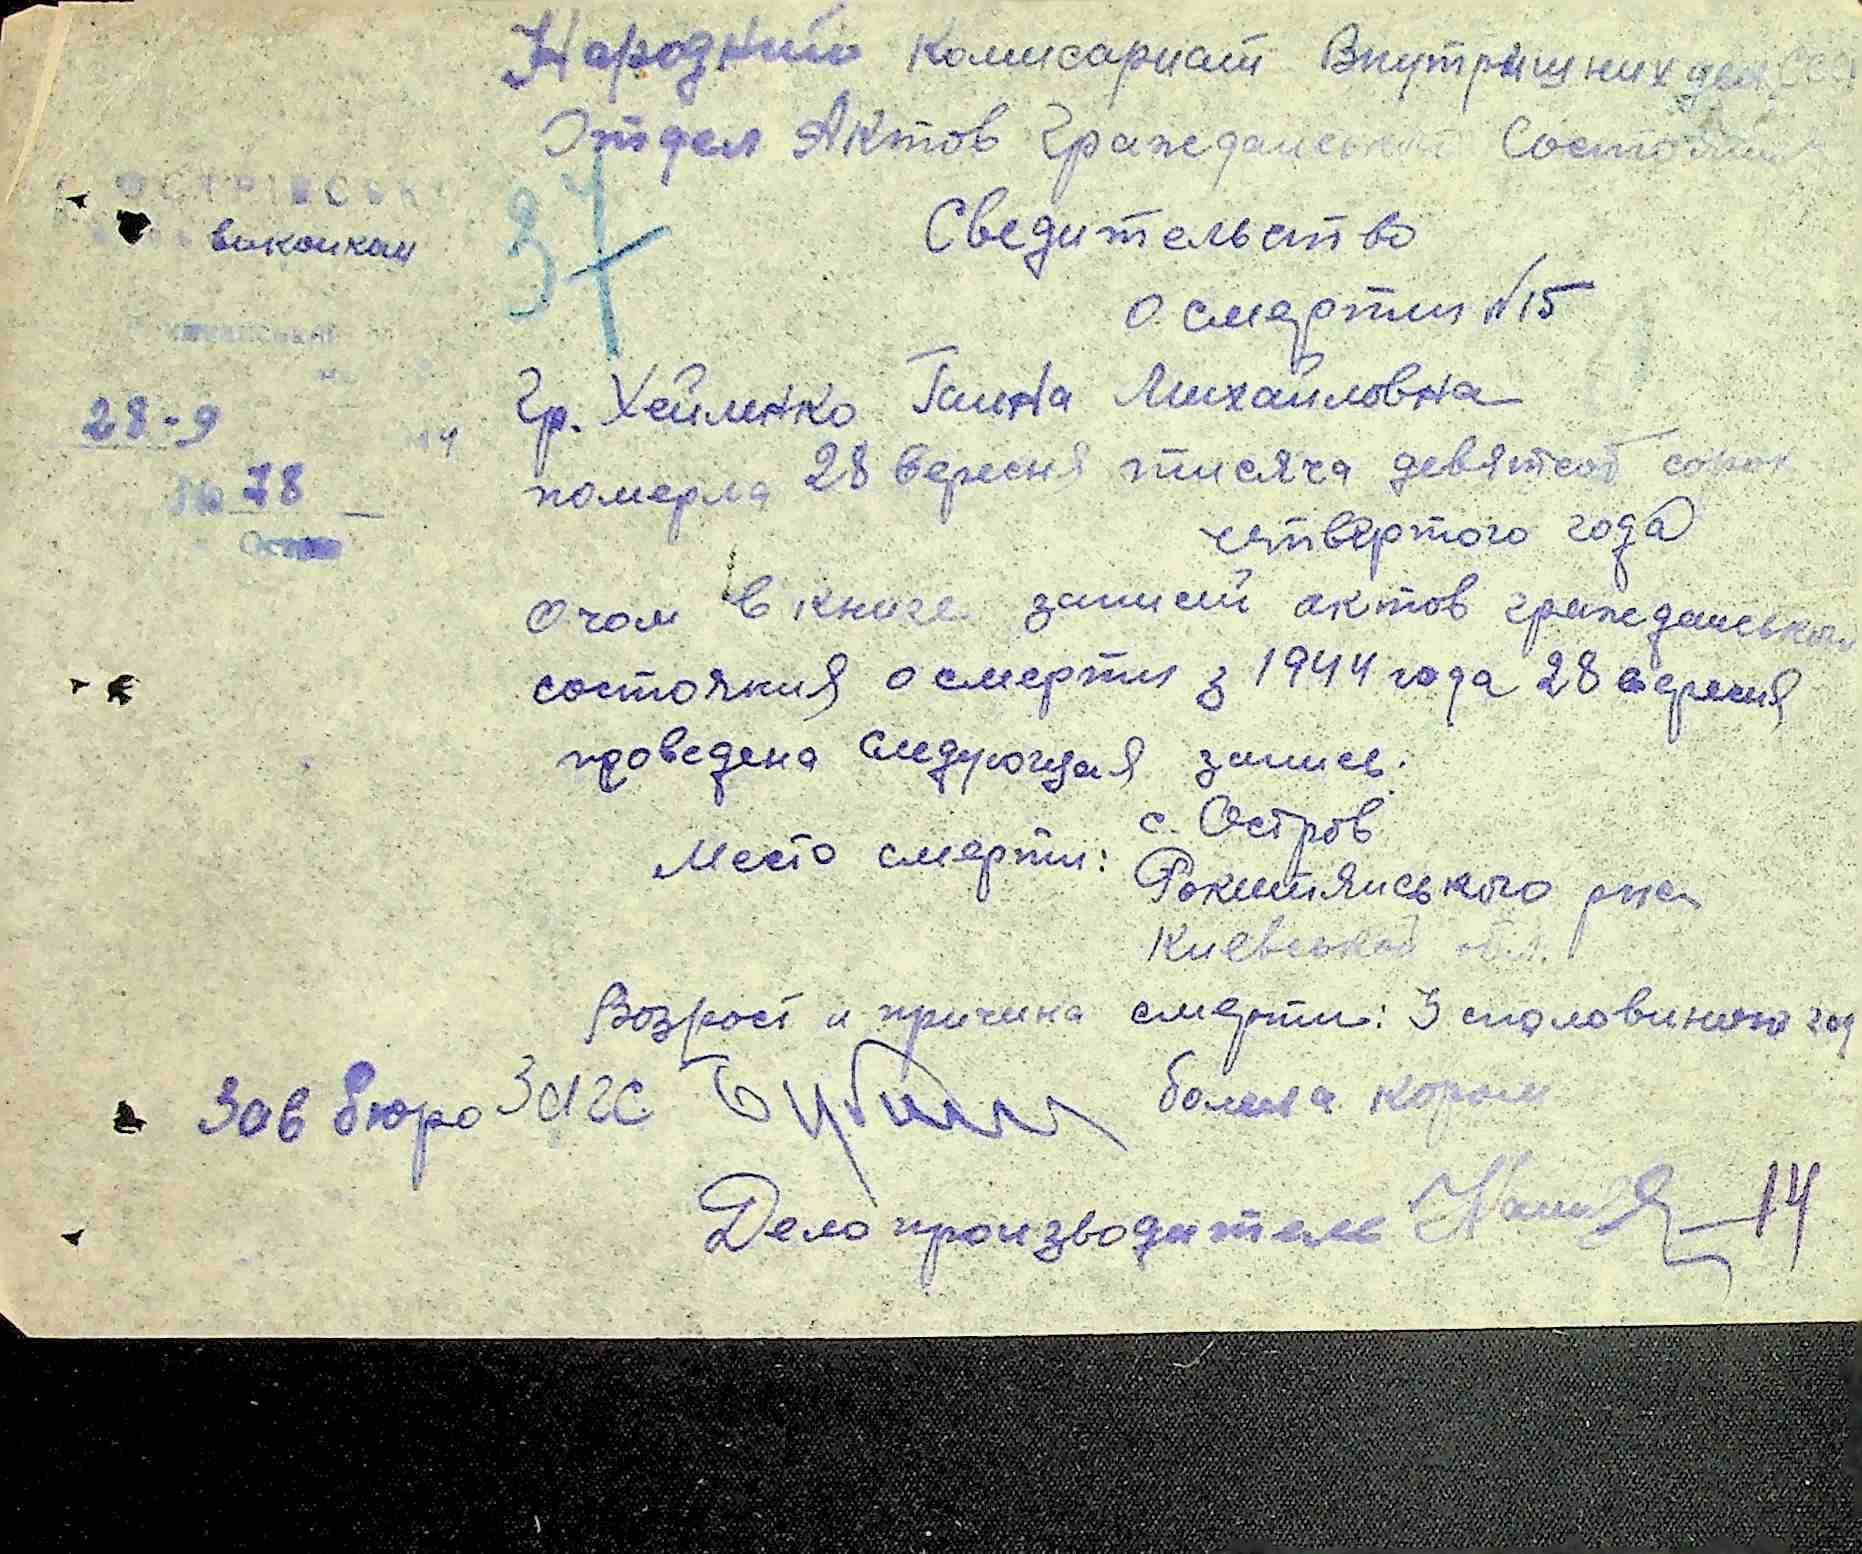 Народний Комисариат Внутришних дел СССР
Отдел Актов Гражданськ Состояния
ОСТРІВСЬК
виконком
37
Сведительство
о смерти №15
28-9
№ 78
Гр. Хейленко Ганна Михайловна
померла 28 вересня тисяча девятсот сорок
четвертого года
О чом в книге записей актов гражданськом
состояния о смерти з 1944 года 28 вересня
проведена следующая запись.
Место смерти: с. Остров
Рокитянського р-на
Киевськой обл.
Возрост и причина смерти: 3 споловиною год
болела корьом
Зав бюро ЗАГС
Дело производитель
14